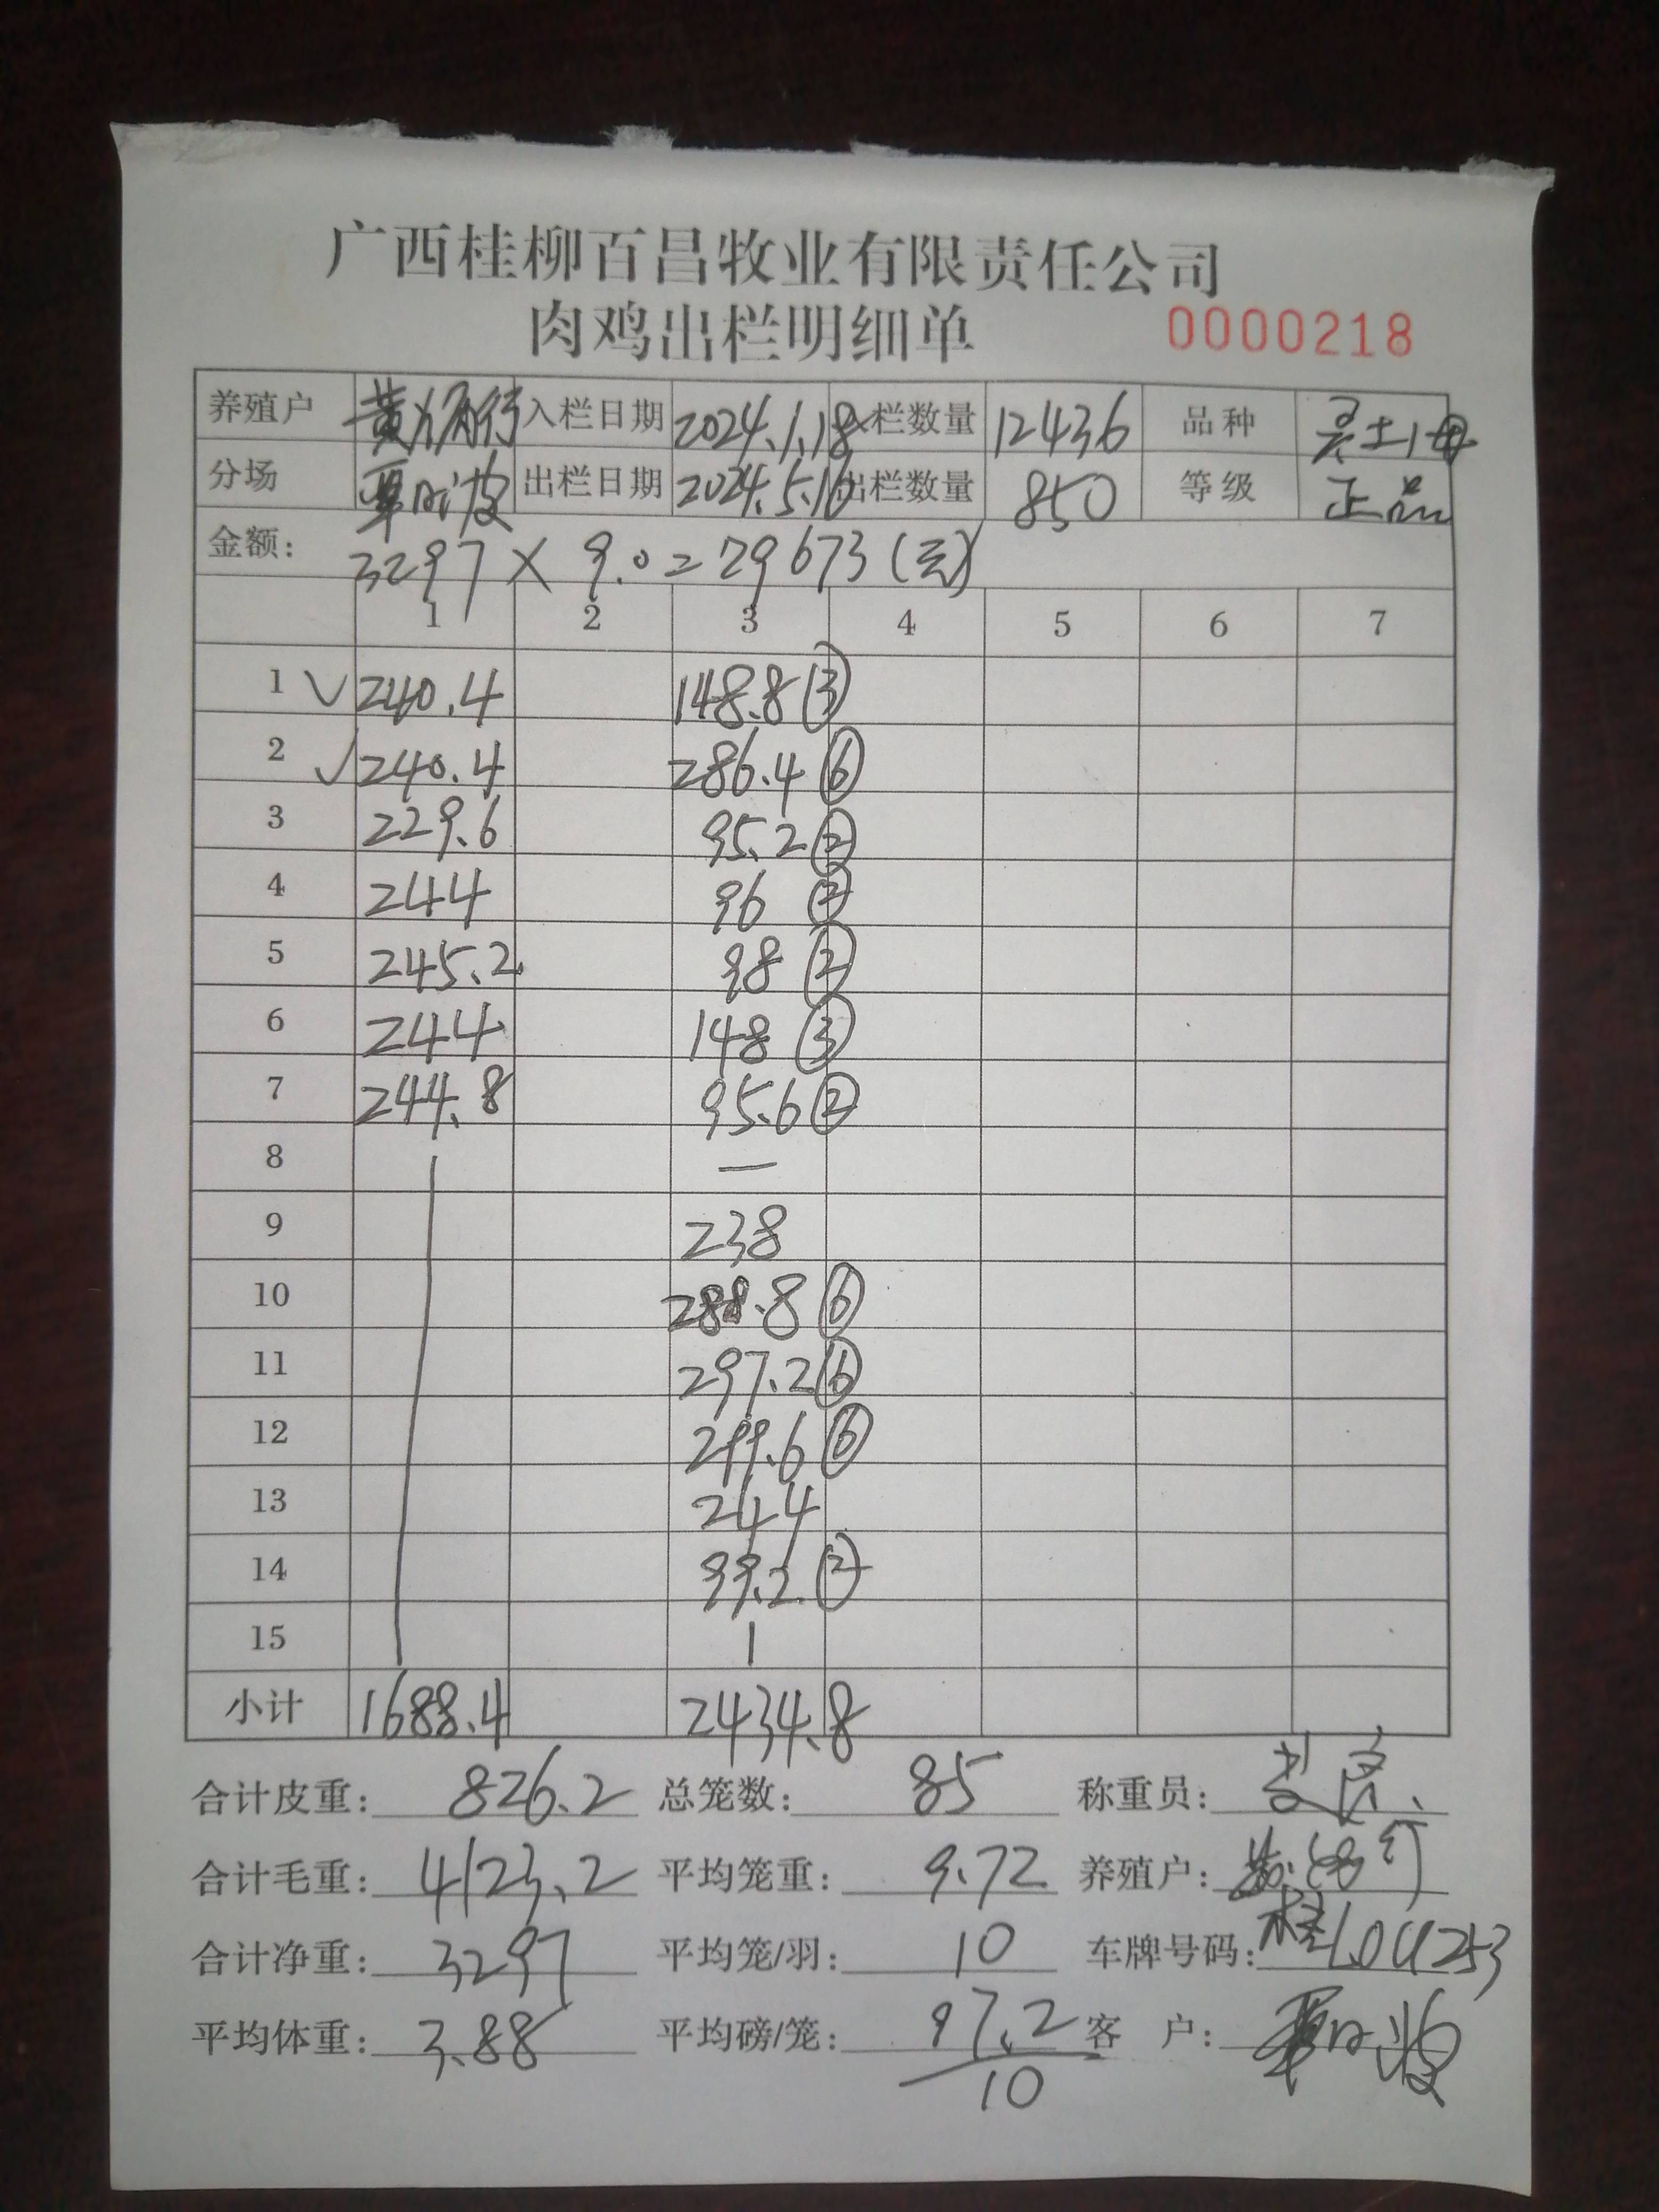 广西桂柳百昌牧业有限责任公司
肉鸡出栏明细单 0000218
养殖户 入栏日期 2024.1.18 入栏数量 12436 品种 土1母
分场 出栏日期 2024.5.16 出栏数量 850 等级 正品
金额: 3297 × 9.0=29673(元)
1 2 3 4 5 6 7
1 ✓ 240.4 148.8 ③
2 ✓ 240.4 286.4 ⑥
3 229.6 95.2 ②
4 244 96 ②
5 245.2 98 ②
6 244 148 ③
7 244.8 95.6 ②
8 —
9 238
10 288.8 ⑥
11 297.2 ⑥
12 299.6 ⑥
13 244
14 99.2 ②
15
小计 1688.4 2434.8
合计皮重: 826.2 总笼数: 85 称重员:
合计毛重: 4123.2 平均笼重: 9.72 养殖户:
合计净重: 3297 平均笼/羽: 10 车牌号码: 桂L0U253
平均体重: 3.88 平均磅/笼: 97.2 客 户:
10